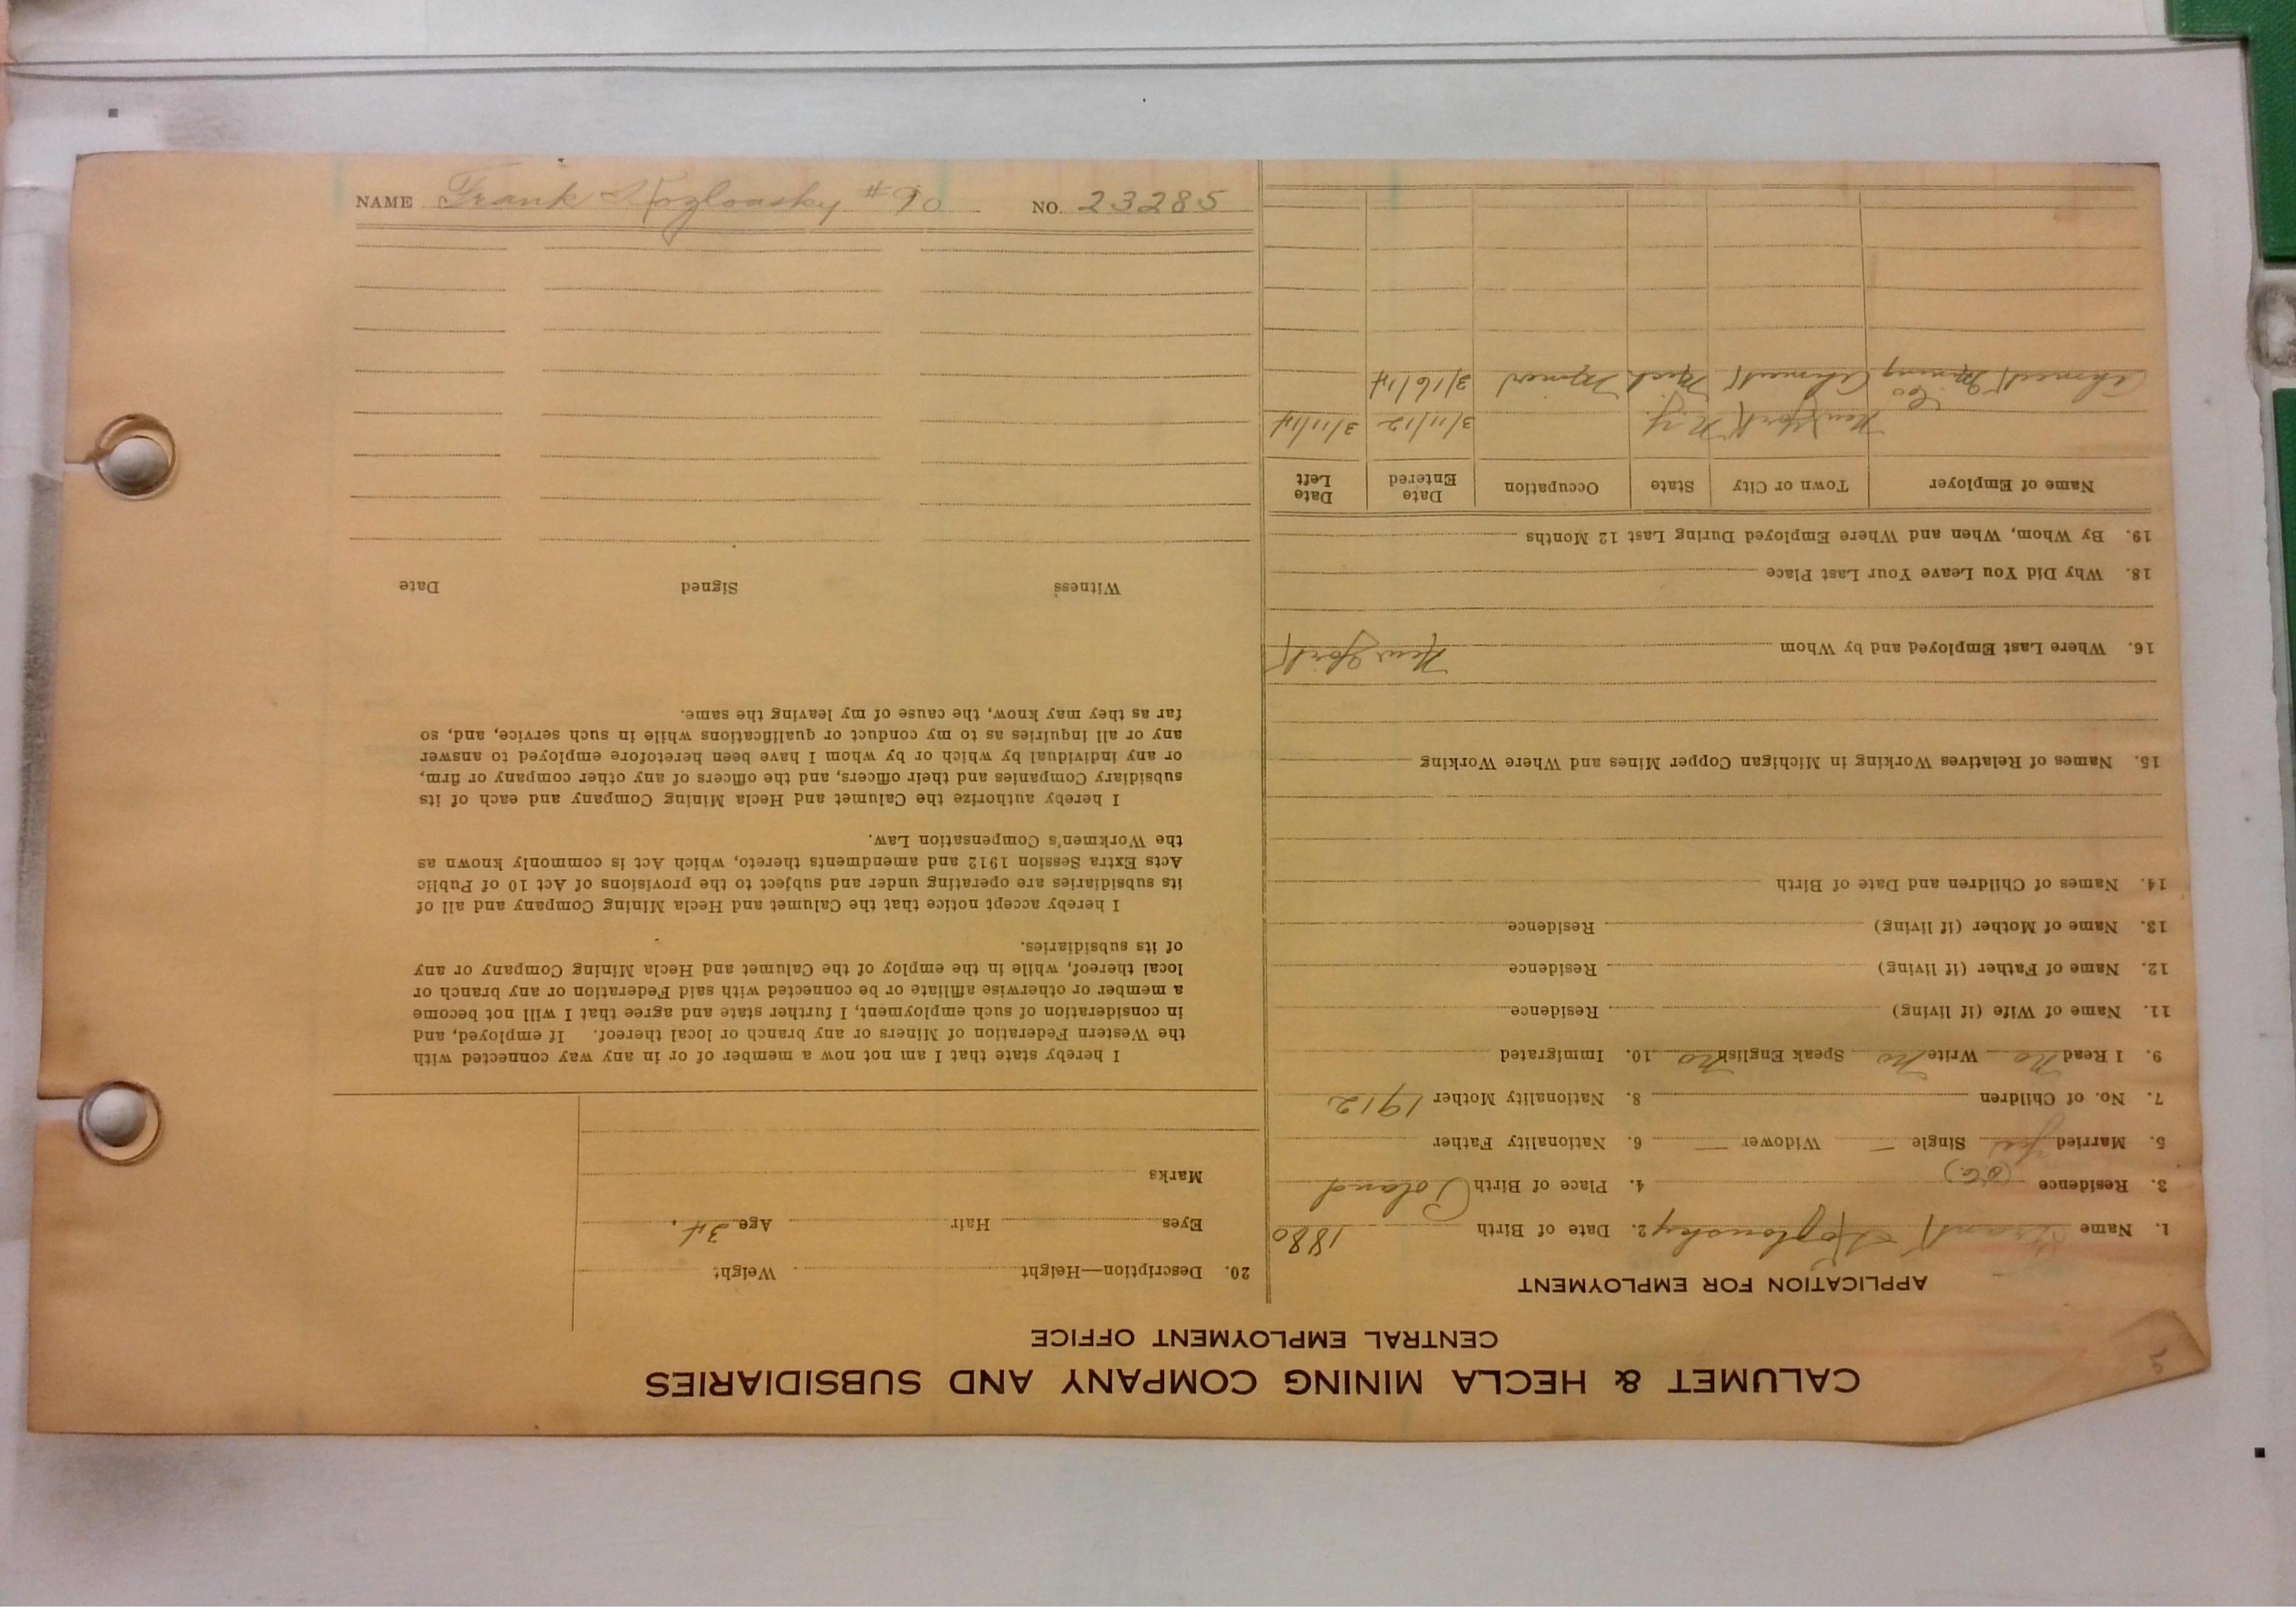 CALUMET & HECLA MINING COMPANY AND SUBSIDIARIES
CENTRAL EMPLOYMENT OFFICE
APPLICATION FOR EMPLOYMENT
1. Name Frank Kozlowsky 2. Date of Birth 1880
3. Residence 4. Place of Birth Poland
5. Married yes Single — Widower — 6. Nationality Father
7. No. of Children 8. Nationality Mother 1912
9. I Read No Write No Speak English No 10. Immigrated
11. Name of Wife (if living) Residence
12. Name of Father (if living) Residence
13. Name of Mother (if living) Residence
14. Names of Children and Date of Birth
15. Names of Relatives Working in Michigan Copper Mines and Where Working
16. Where Last Employed and by Whom New York
18. Why Did You Leave Your Last Place
19. By Whom, When and Where Employed During Last 12 Months
Name of Employer Town or City State Occupation Date Entered Date Left
New York N.Y. 3/11/12 3/11/14
Ahmeek Mining Co Ahmeek Mich Miner 3/16/14
20. Description—Height Weight
Eyes Hair Age 34.
Marks
I hereby state that I am not now a member of or in any way connected with
the Western Federation of Miners or any branch or local thereof. If employed, and
in consideration of such employment, I further state and agree that I will not become
a member or otherwise affiliate or be connected with said Federation or any branch or
local thereof, while in the employ of the Calumet and Hecla Mining Company or any
of its subsidiaries.
I hereby accept notice that the Calumet and Hecla Mining Company and all of
its subsidiaries are operating under and subject to the provisions of Act 10 of Public
Acts Extra Session 1912 and amendments thereto, which Act is commonly known as
the Workmen's Compensation Law.
I hereby authorize the Calumet and Hecla Mining Company and each of its
subsidiary Companies and their officers, and the officers of any other company or firm,
or any individual by which or by whom I have been heretofore employed to answer
any or all inquiries as to my conduct or qualifications while in such service, and, so
far as they may know, the cause of my leaving the same.
Witness Signed Date
NAME Frank Kozlowsky #90 NO. 23285